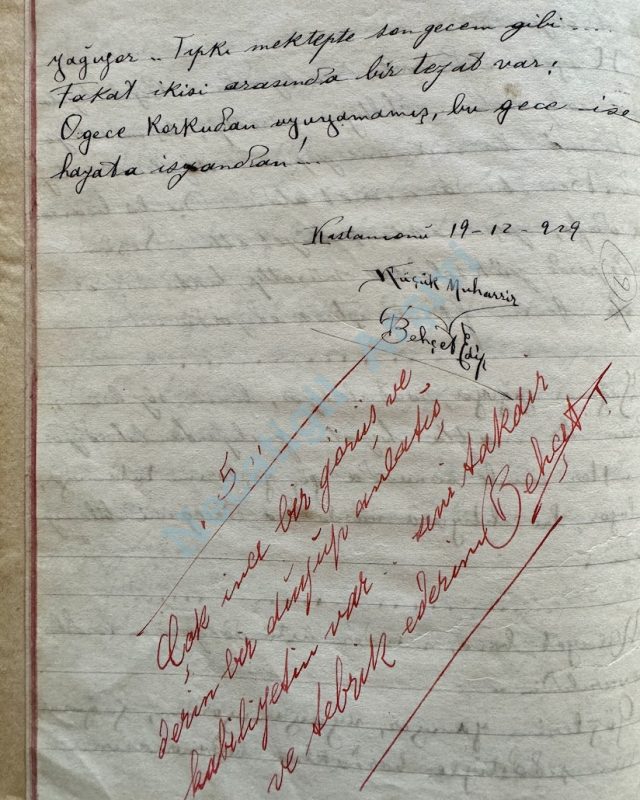 yağıyor .. Tıpkı mektepte son gecem gibi....
Fakat ikisi arasında bir tezat var:
O gece korkudan uyuyamamış, bu gece ise
hayata isyandan!..
Kastamonu 19-12-929
Küçük Muharrir
Behçet Edip
5
Çok ince bir görüş ve
derin bir duyup anlatış
kabiliyetin var. seni takdir
ve tebrik ederim Behçet!